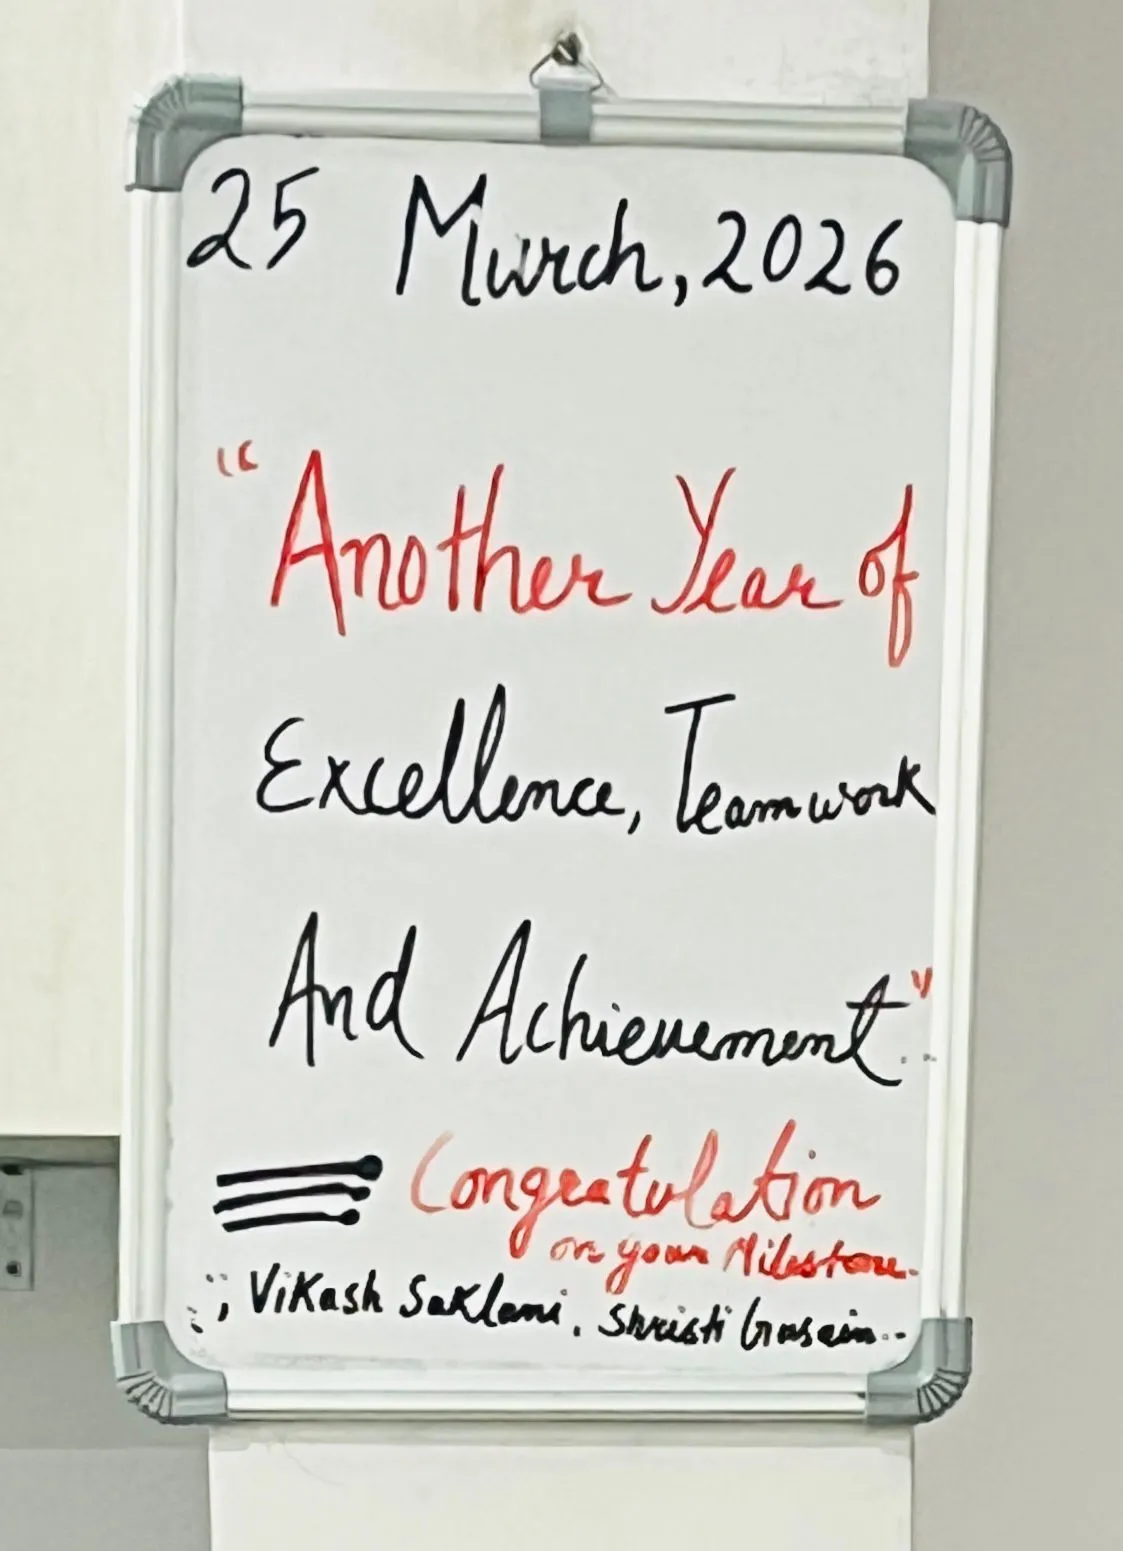 25 March, 2026
"Another Year of
Excellence, Teamwork
And Achievement."
Congratulation
on your Milestone.
Vikash Saklani, Shristi Gusain..